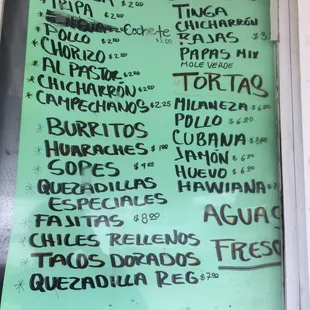 TRIPA $2.00
Cochete $2.00
* POLLO $2.00
* CHORIZO $2.00
* AL PASTOR $2.00
* CHICHARRÓN $2.00
* CAMPECHANOS $2.25
* BURRITOS
* HUARACHES
* SOPES
* QUEZADILLAS
ESPECIALES
* FAJITAS $8.00
* CHILES RELLENOS
* TACOS DORADOS
* QUEZADILLA REG $7.00
TINGA
CHICHARRÓN
RAJAS
PAPAS MIX
MOLE VERDE
TORTAS
MILANEZA
POLLO
CUBANA
JAMÓN
HUEVO
HAWIANA
AGUAS
FRESC